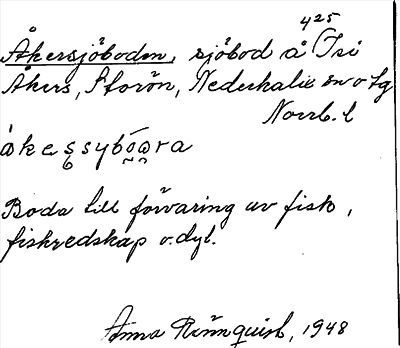 425
Åkersjöboden, sjöbod å Isi
Åkers, Storön, Nederkalix sn o tg
Norrb. l
åkeşsybo̯a̯ra
Boda till förvaring av fisk,
fiskredskap o.dyl.
Anna Rönnquist, 1948